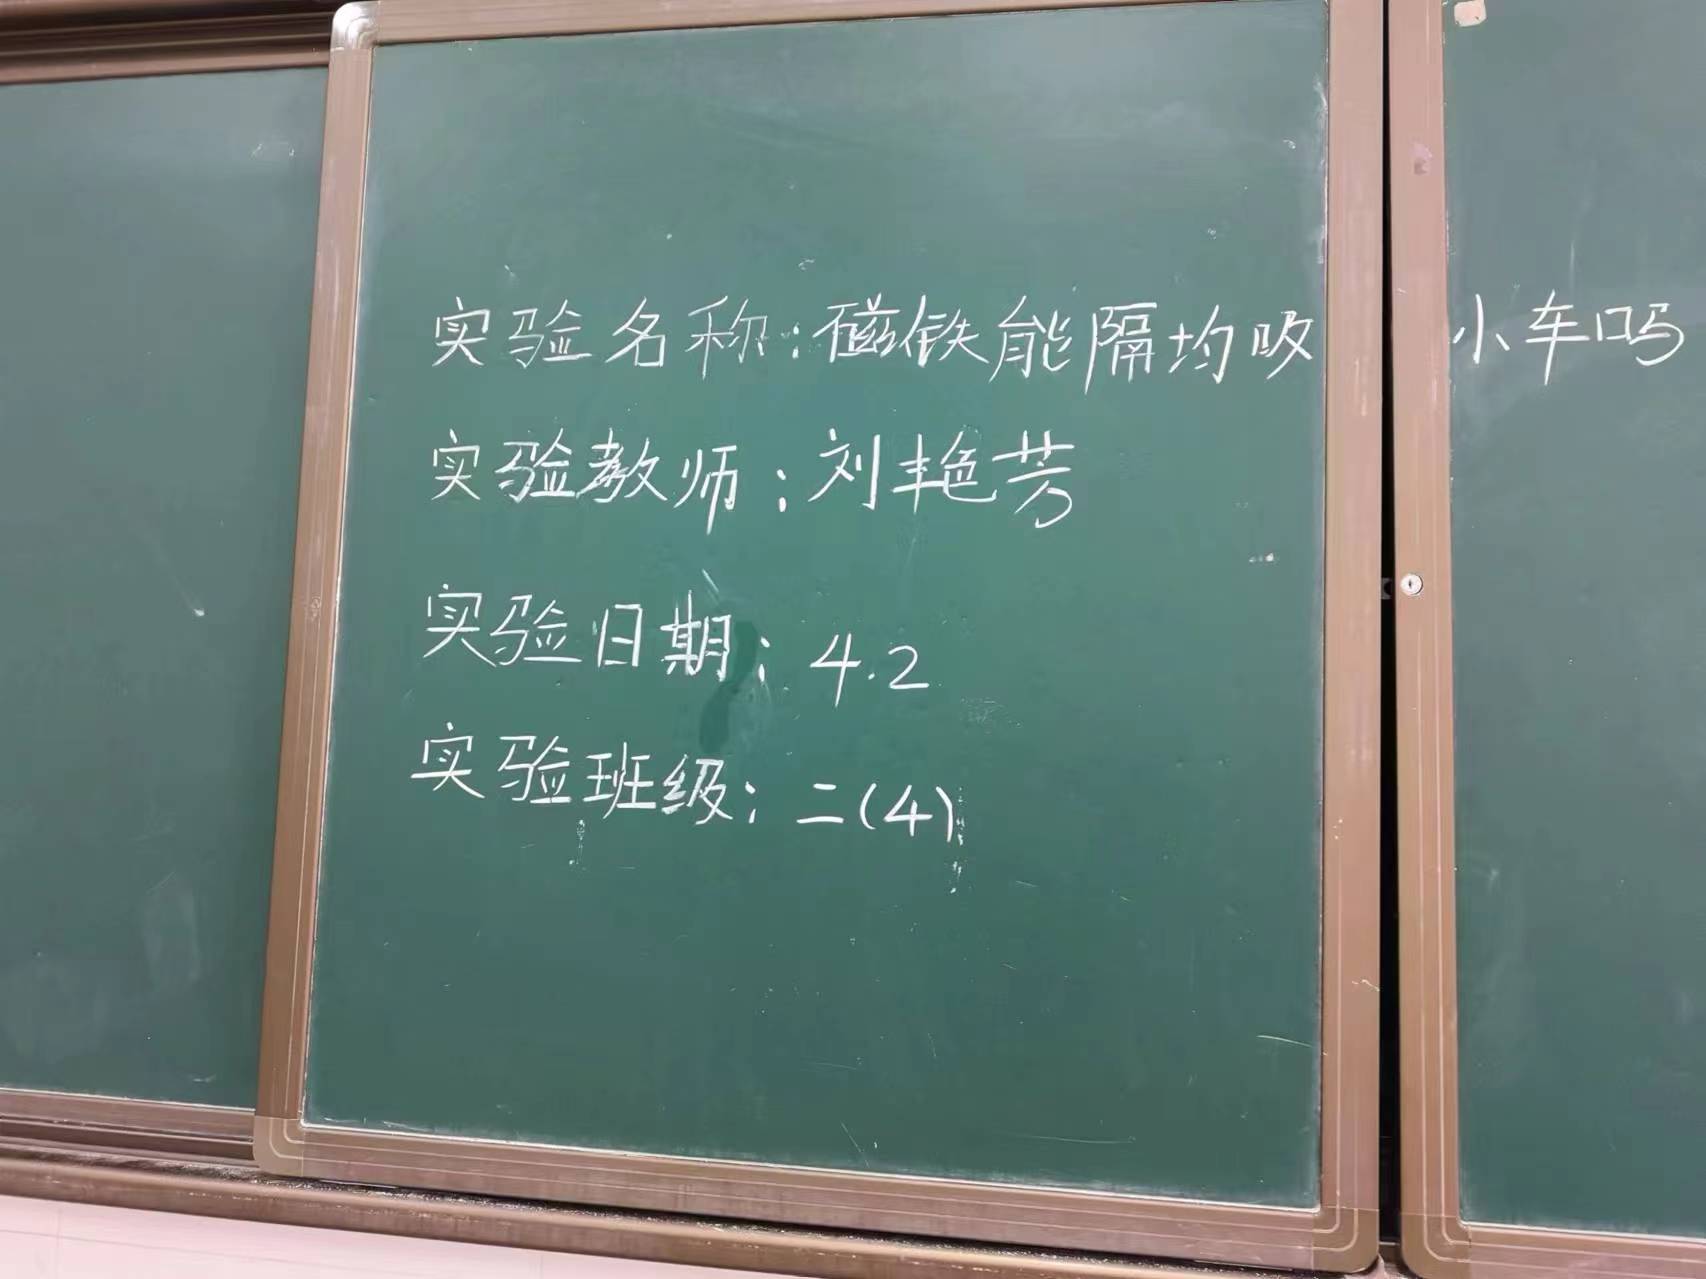 实验名称:磁铁能隔均吸小车吗
实验教师:刘艳芳
实验日期:4.2
实验班级:二(4)